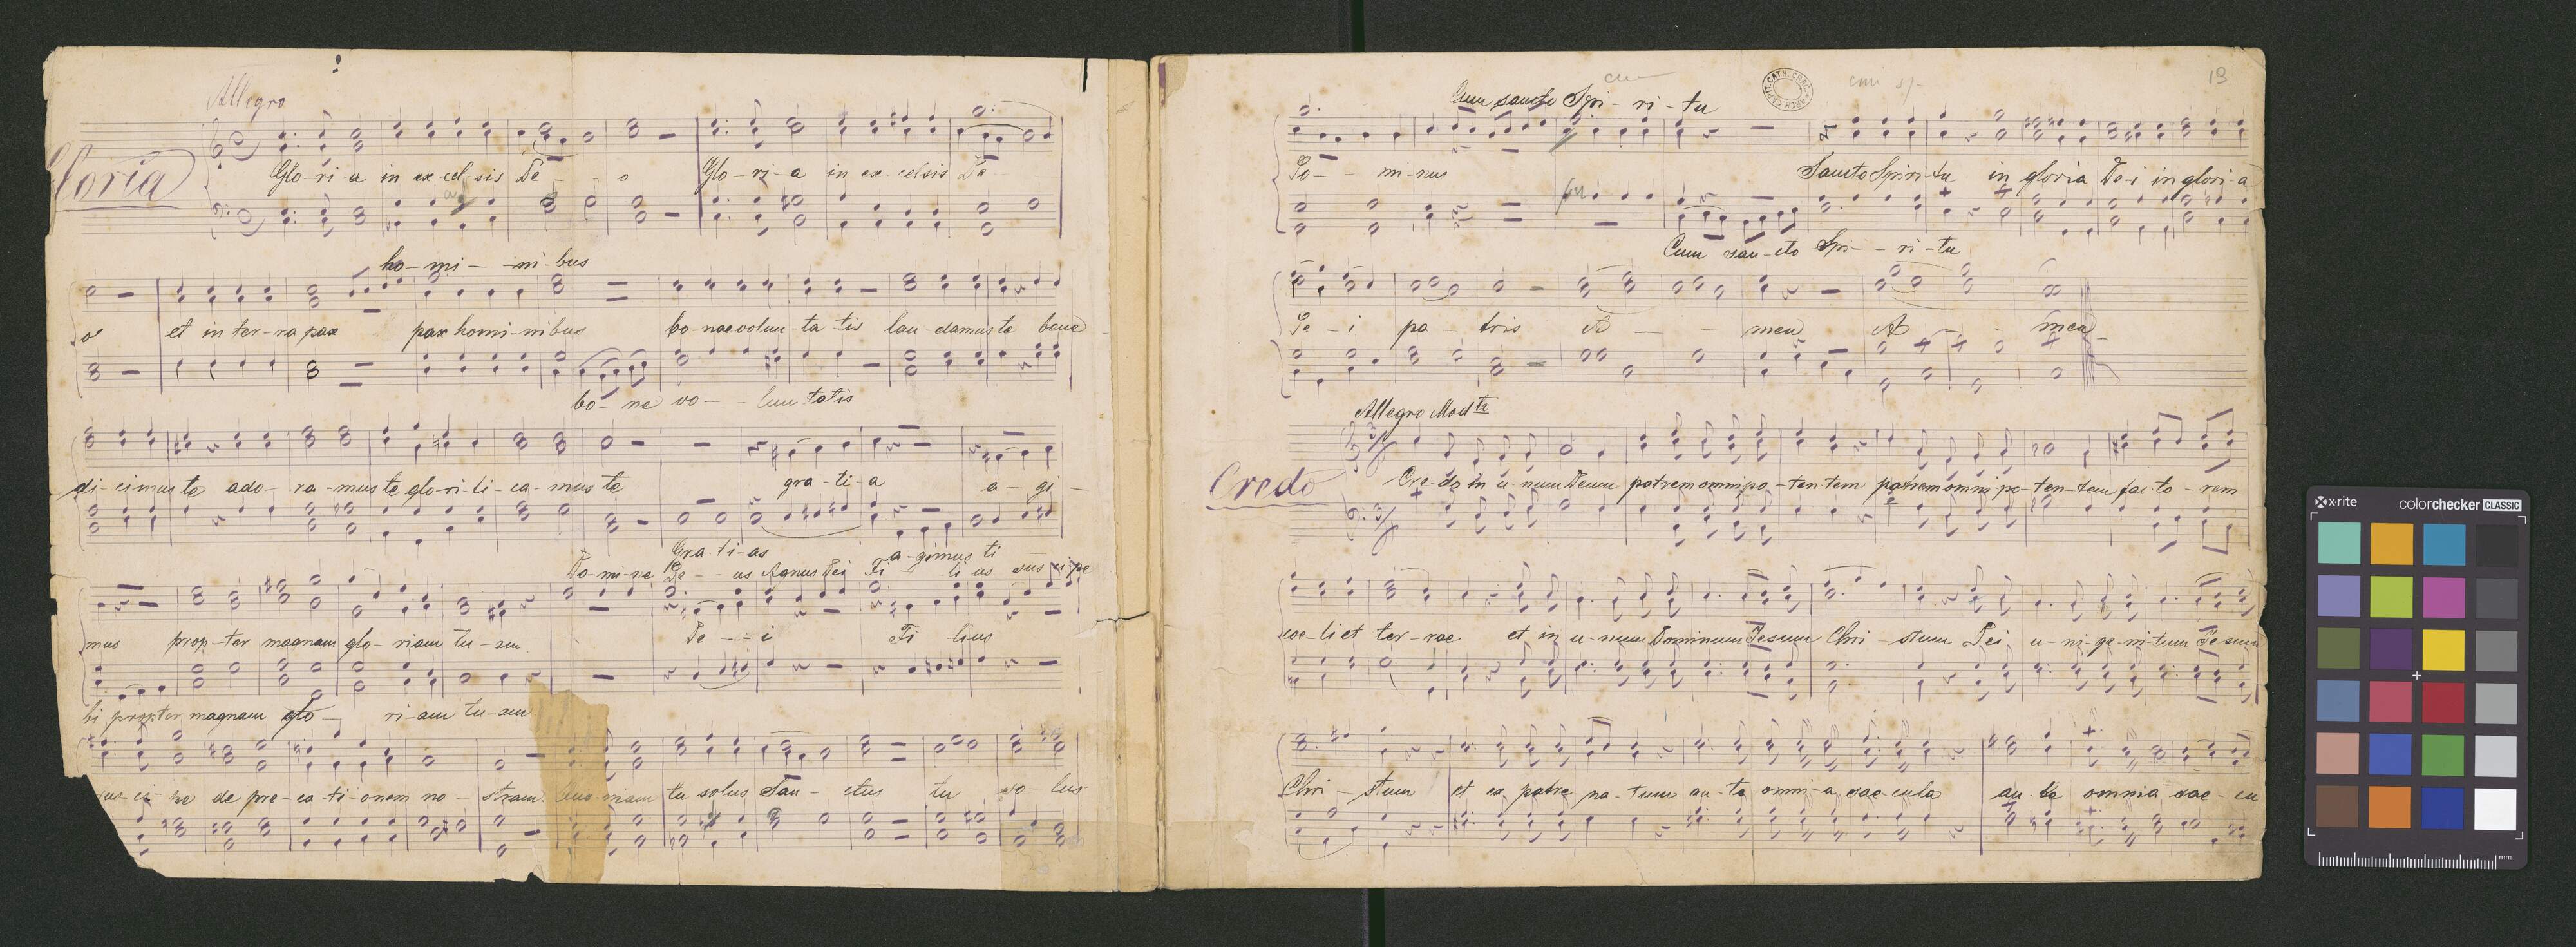 Allegro
Gloria
Glo-ri-a in ex-cel-sis De - o Glo-ri-a in ex-celsis De
ho-mi-ni-bus
o et in ter-ra pax pax homi-nibus bo-nae volun-ta-tis lau-damus te bene
bo-ne vo-lun-tatis
di-cimus te ado-ra-mus te glo-ri-fi-ca-mus te gra-ti-a a-gi-
Gra-ti-as a-gimus ti
Do-mi-ne De-us Agnus Dei Fi-li us sus ci-pe
mus prop-ter magnam glo-riam tu-am De--i Fi-lius
bi propter magnam glo-riam tu-am
de pre-ca-ti-onem no-stram. Quo-niam tu solus San-ctus tu so-lus
19
Cum sancto Spi-ri-tu
CATH. CRAC. ARCH. CAPIT.
Do-mi-nus Sancto Spiri-tu in gloria De-i in glori-a
Cum san-cto Spi--ri-tu
De-i pa-tris A--men A--men
Allegro Mod to
Credo
Cre-do in u-num Deum patrem omnipo-ten-tem patrem omni-po-ten-tem fac-to-rem
coe-li et ter-rae et in u-num Dominum Jesum Chri-stum Dei u-ni-ge-ni-tum Jesum
Chri-stum et ex patre na-tum an-te omni-a sae-cula an-te omnia sae-cu
x-rite colorchecker CLASSIC
mm